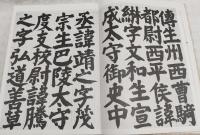 傳生州西曹騎
都尉西平侯諱
綝字文和生宣
成太守御史中
丞諱靖之字茂
宗生巴陵太守
度支校尉諱騰
之字弘道善草